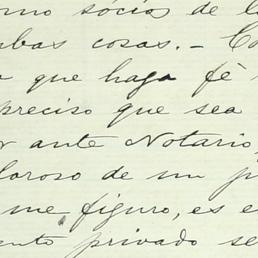 como socios de l
mbas cosas.- Co
a que haga fé
preciso que sea
r ante Notario,
loroso de un p
me figuro, es e
ento privado se